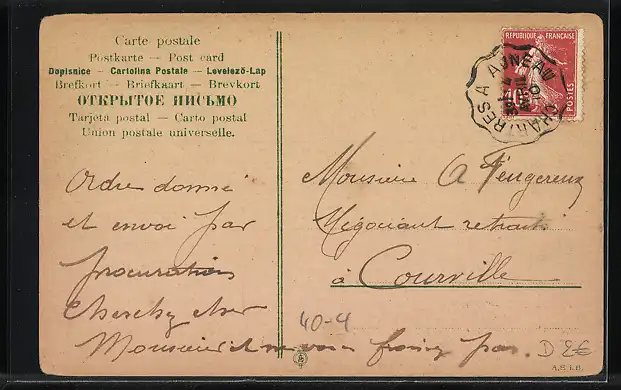 Carte postale
Postkarte – Post card
Dopisnice – Cartolina Postale – Levelező-Lap
Brefkort – Briefkaart – Brevkort
ОТКРЫТОЕ ПИСЬМО
Tarjeta postal – Carto postal
Union postale universelle.
RÉPUBLIQUE FRANÇAISE
10
POSTES
CHARTRES A AUNEAU
Ordre donné
et envoi par
procuration
Cherchez cher
Monsieur et ne vous pas.
Monsieur A Feugereux
Négociant retraité
à Courville
40-4
D 2€